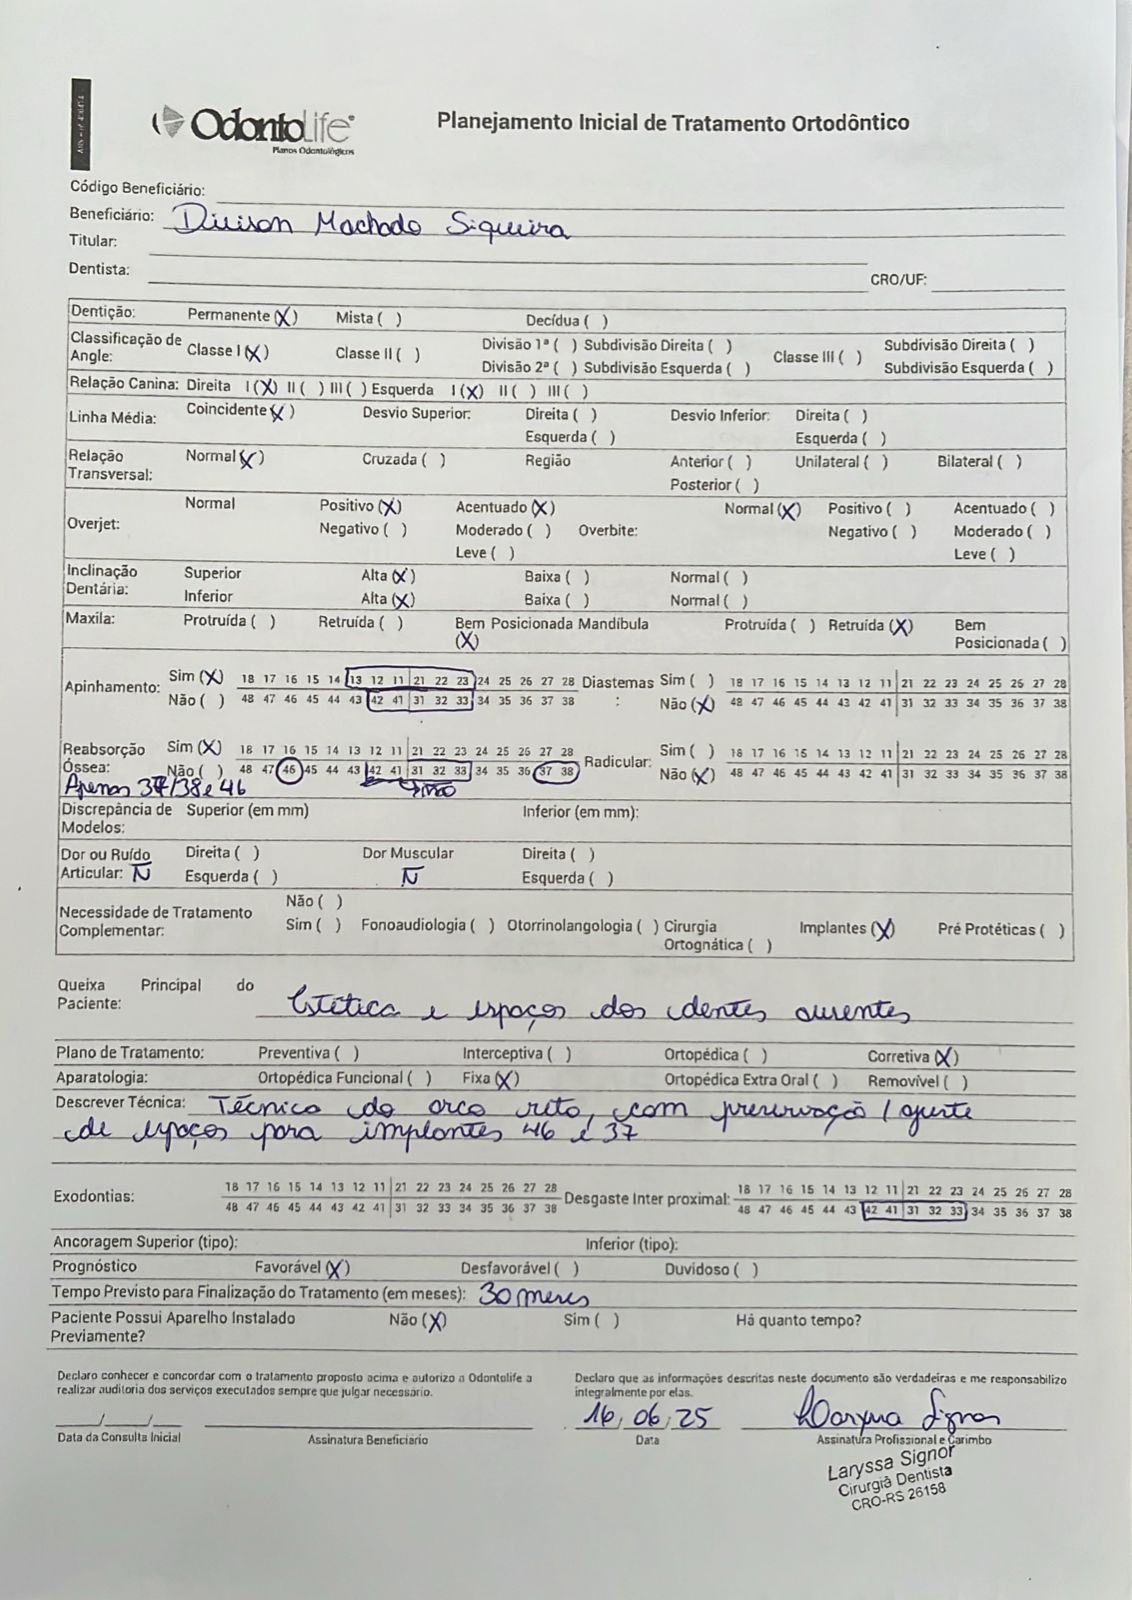 OdontoLife®
Planos Odontológicos
Planejamento Inicial de Tratamento Ortodôntico
Código Beneficiário:
Beneficiário: Divison Machado Siqueira
Titular:
Dentista: CRO/UF:
Dentição: Permanente (X) Mista ( ) Decídua ( )
Classificação de Angle: Classe I (X) Classe II ( ) Divisão 1ª ( ) Subdivisão Direita ( ) Classe III ( ) Subdivisão Direita ( )
Divisão 2ª ( ) Subdivisão Esquerda ( ) Subdivisão Esquerda ( )
Relação Canina: Direita I (X) II ( ) III ( ) Esquerda I (X) II ( ) III ( )
Linha Média: Coincidente (X) Desvio Superior: Direita ( ) Desvio Inferior: Direita ( )
Esquerda ( ) Esquerda ( )
Relação Transversal: Normal (X) Cruzada ( ) Região Anterior ( ) Unilateral ( ) Bilateral ( )
Posterior ( )
Overjet: Normal Positivo (X) Acentuado (X) Overbite: Normal (X) Positivo ( ) Acentuado ( )
Negativo ( ) Moderado ( ) Negativo ( ) Moderado ( )
Leve ( ) Leve ( )
Inclinação Dentária: Superior Alta (X) Baixa ( ) Normal ( )
Inferior Alta (X) Baixa ( ) Normal ( )
Maxila: Protruída ( ) Retruída ( ) Bem Posicionada (X) Mandíbula Protruída ( ) Retruída (X) Bem Posicionada ( )
Apinhamento: Sim (X) 18 17 16 15 14 13 12 11 21 22 23 24 25 26 27 28 Diastemas: Sim ( ) 18 17 16 15 14 13 12 11 21 22 23 24 25 26 27 28
Não ( ) 48 47 46 45 44 43 42 41 31 32 33 34 35 36 37 38 Não (X) 48 47 46 45 44 43 42 41 31 32 33 34 35 36 37 38
Reabsorção Óssea: Sim (X) 18 17 16 15 14 13 12 11 21 22 23 24 25 26 27 28 Radicular: Sim ( ) 18 17 16 15 14 13 12 11 21 22 23 24 25 26 27 28
Não ( ) 48 47 46 45 44 43 42 41 31 32 33 34 35 36 37 38 Não (X) 48 47 46 45 44 43 42 41 31 32 33 34 35 36 37 38
Apenas 37/38 e 46 não
Discrepância de Modelos: Superior (em mm) Inferior (em mm):
Dor ou Ruído Articular: N Direita ( ) Dor Muscular N Direita ( )
Esquerda ( ) Esquerda ( )
Necessidade de Tratamento Complementar: Não ( )
Sim ( ) Fonoaudiologia ( ) Otorrinolangologia ( ) Cirurgia Ortognática ( ) Implantes (X) Pré Protéticas ( )
Queixa Principal do Paciente: Estética e espaços dos dentes ausentes
Plano de Tratamento: Preventiva ( ) Interceptiva ( ) Ortopédica ( ) Corretiva (X)
Aparatologia: Ortopédica Funcional ( ) Fixa (X) Ortopédica Extra Oral ( ) Removível ( )
Descrever Técnica: Técnica do arco reto, com preservação / ajuste
de espaços para implantes 46 e 37
Exodontias: 18 17 16 15 14 13 12 11 21 22 23 24 25 26 27 28 Desgaste Inter proximal: 18 17 16 15 14 13 12 11 21 22 23 24 25 26 27 28
48 47 46 45 44 43 42 41 31 32 33 34 35 36 37 38 48 47 46 45 44 43 42 41 31 32 33 34 35 36 37 38
Ancoragem Superior (tipo): Inferior (tipo):
Prognóstico Favorável (X) Desfavorável ( ) Duvidoso ( )
Tempo Previsto para Finalização do Tratamento (em meses): 30 meses
Paciente Possui Aparelho Instalado Previamente? Não (X) Sim ( ) Há quanto tempo?
Declaro conhecer e concordar com o tratamento proposto acima e autorizo a Odontolife a realizar auditoria dos serviços executados sempre que julgar necessário.
Declaro que as informações descritas neste documento são verdadeiras e me responsabilizo integralmente por elas.
16/06/25 Laryssa Signor
Data da Consulta Inicial Assinatura Beneficiario Data Assinatura Profissional e Carimbo
Laryssa Signor
Cirurgiã Dentista
CRO-RS 26158